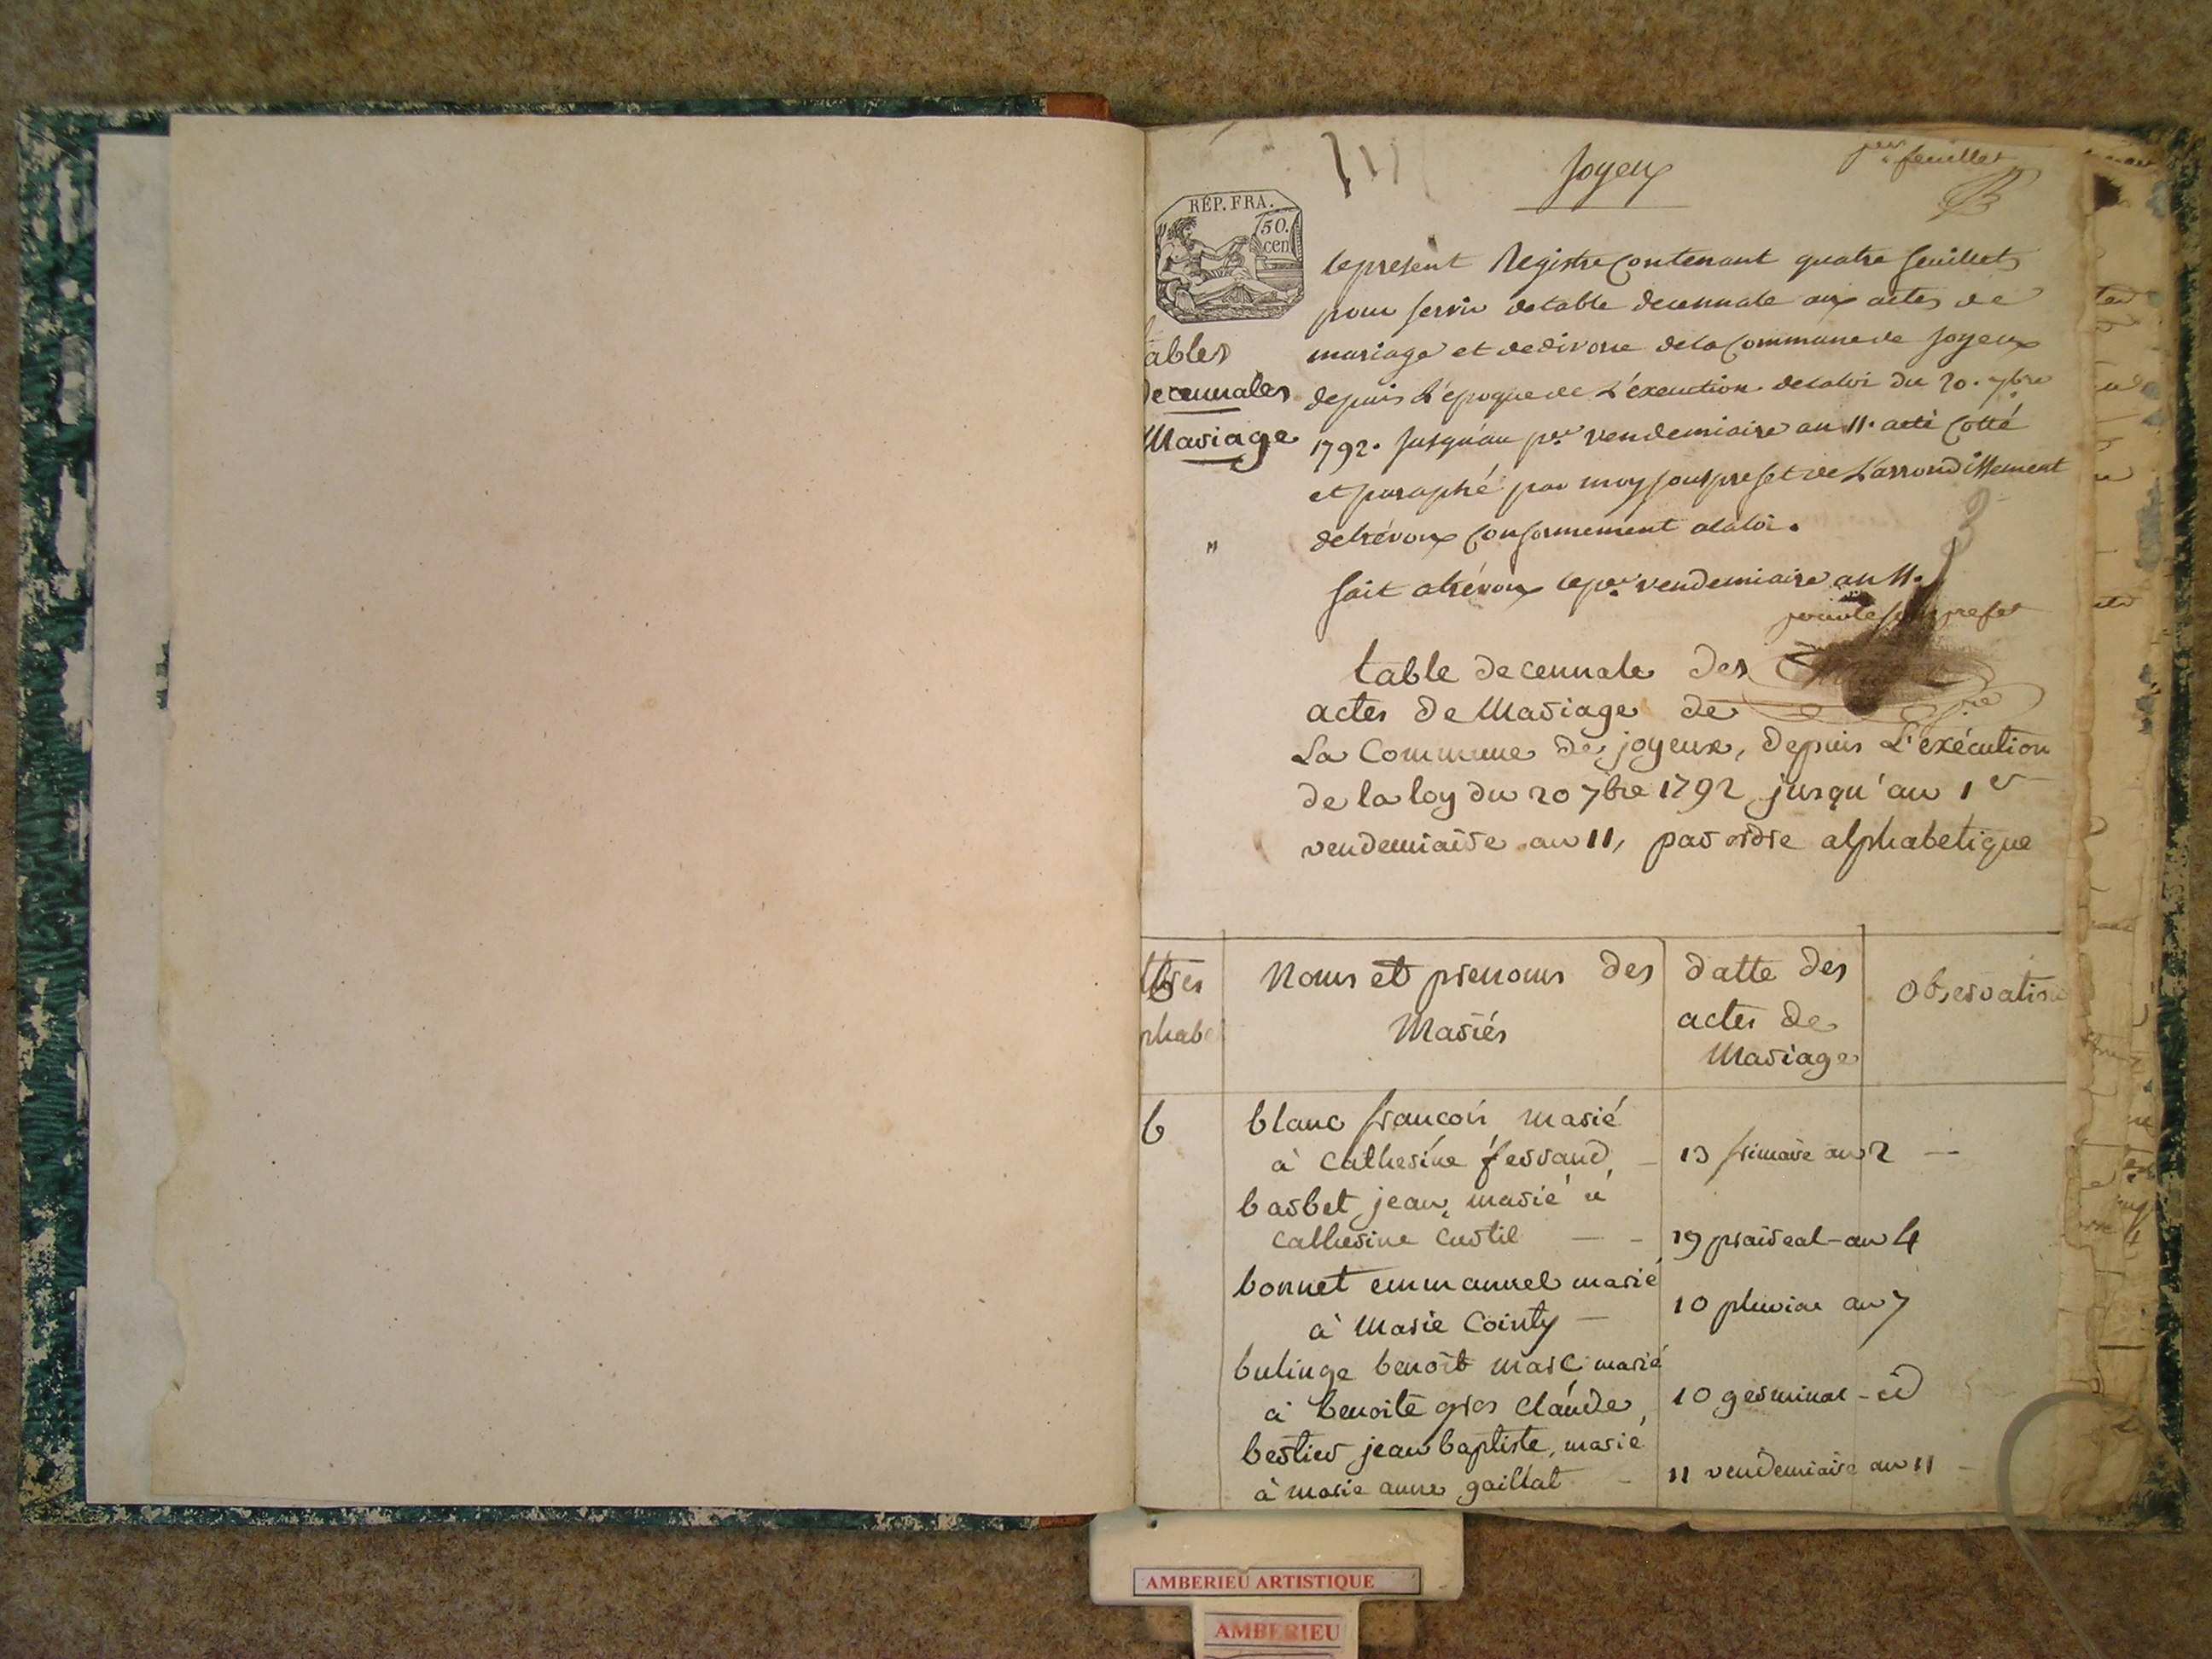 Joyeux
per feuillet
RÉP. FRA.
50.
cen
le present Registre Contenant quatre feuillets
pour servir de table decennale aux actes de
mariage et de divorce de la Commune de Joyeux
depuis L'époque de L'éxecution de la loi du 20. 7bre
1792. Jusqu'au per vendemiaire an 11. acté Cotté
et paraphé par moy souspréfet de L'arrondissement
de trévoux Conformement a la loi.
fait a trévoux le per vendemiaire an 11.
pour le souspréfet
ables
decennales
Mariage
"
table decennale des
actes de Mariage de
La Commune de joyeux, depuis L'exécution
de la loy du 20 7bre 1792 jusqu'au 1er
vendemiaire au 11, par ordre alphabetique
ttres
phabe
Noms et prenoms des
Mariés
datte des
actes de
Mariage
Observation
b
blanc francois marié
à Catherine ferrand, — 13 frimaire an 2 —
barbet jean, marié à
Catherine Curtil — - 19 prairéal - an 4
bonnet emmanuel marié
à Marie Cointy — 10 pluviose an 7
bulinge benoît marc marié
à benoite gros Claude, 10 germinal - id
bertier jean baptiste, marié
à marie anne gaillat - 11 vendemiaire an 11 -
AMBERIEU ARTISTIQUE
AMBERIEU